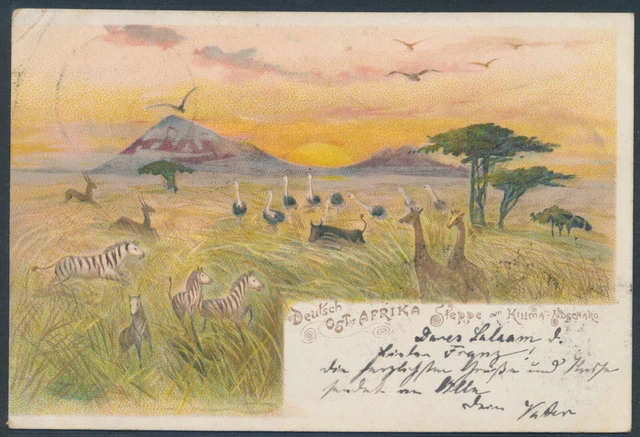 Deutsch
OST-AFRIKA Steppe am KILIMA-NDSCHARO
Dares Salaam d.
Lieber Franz!
die herzlichsten Grüße und Küsse
sendet an Alle
Dein Vater